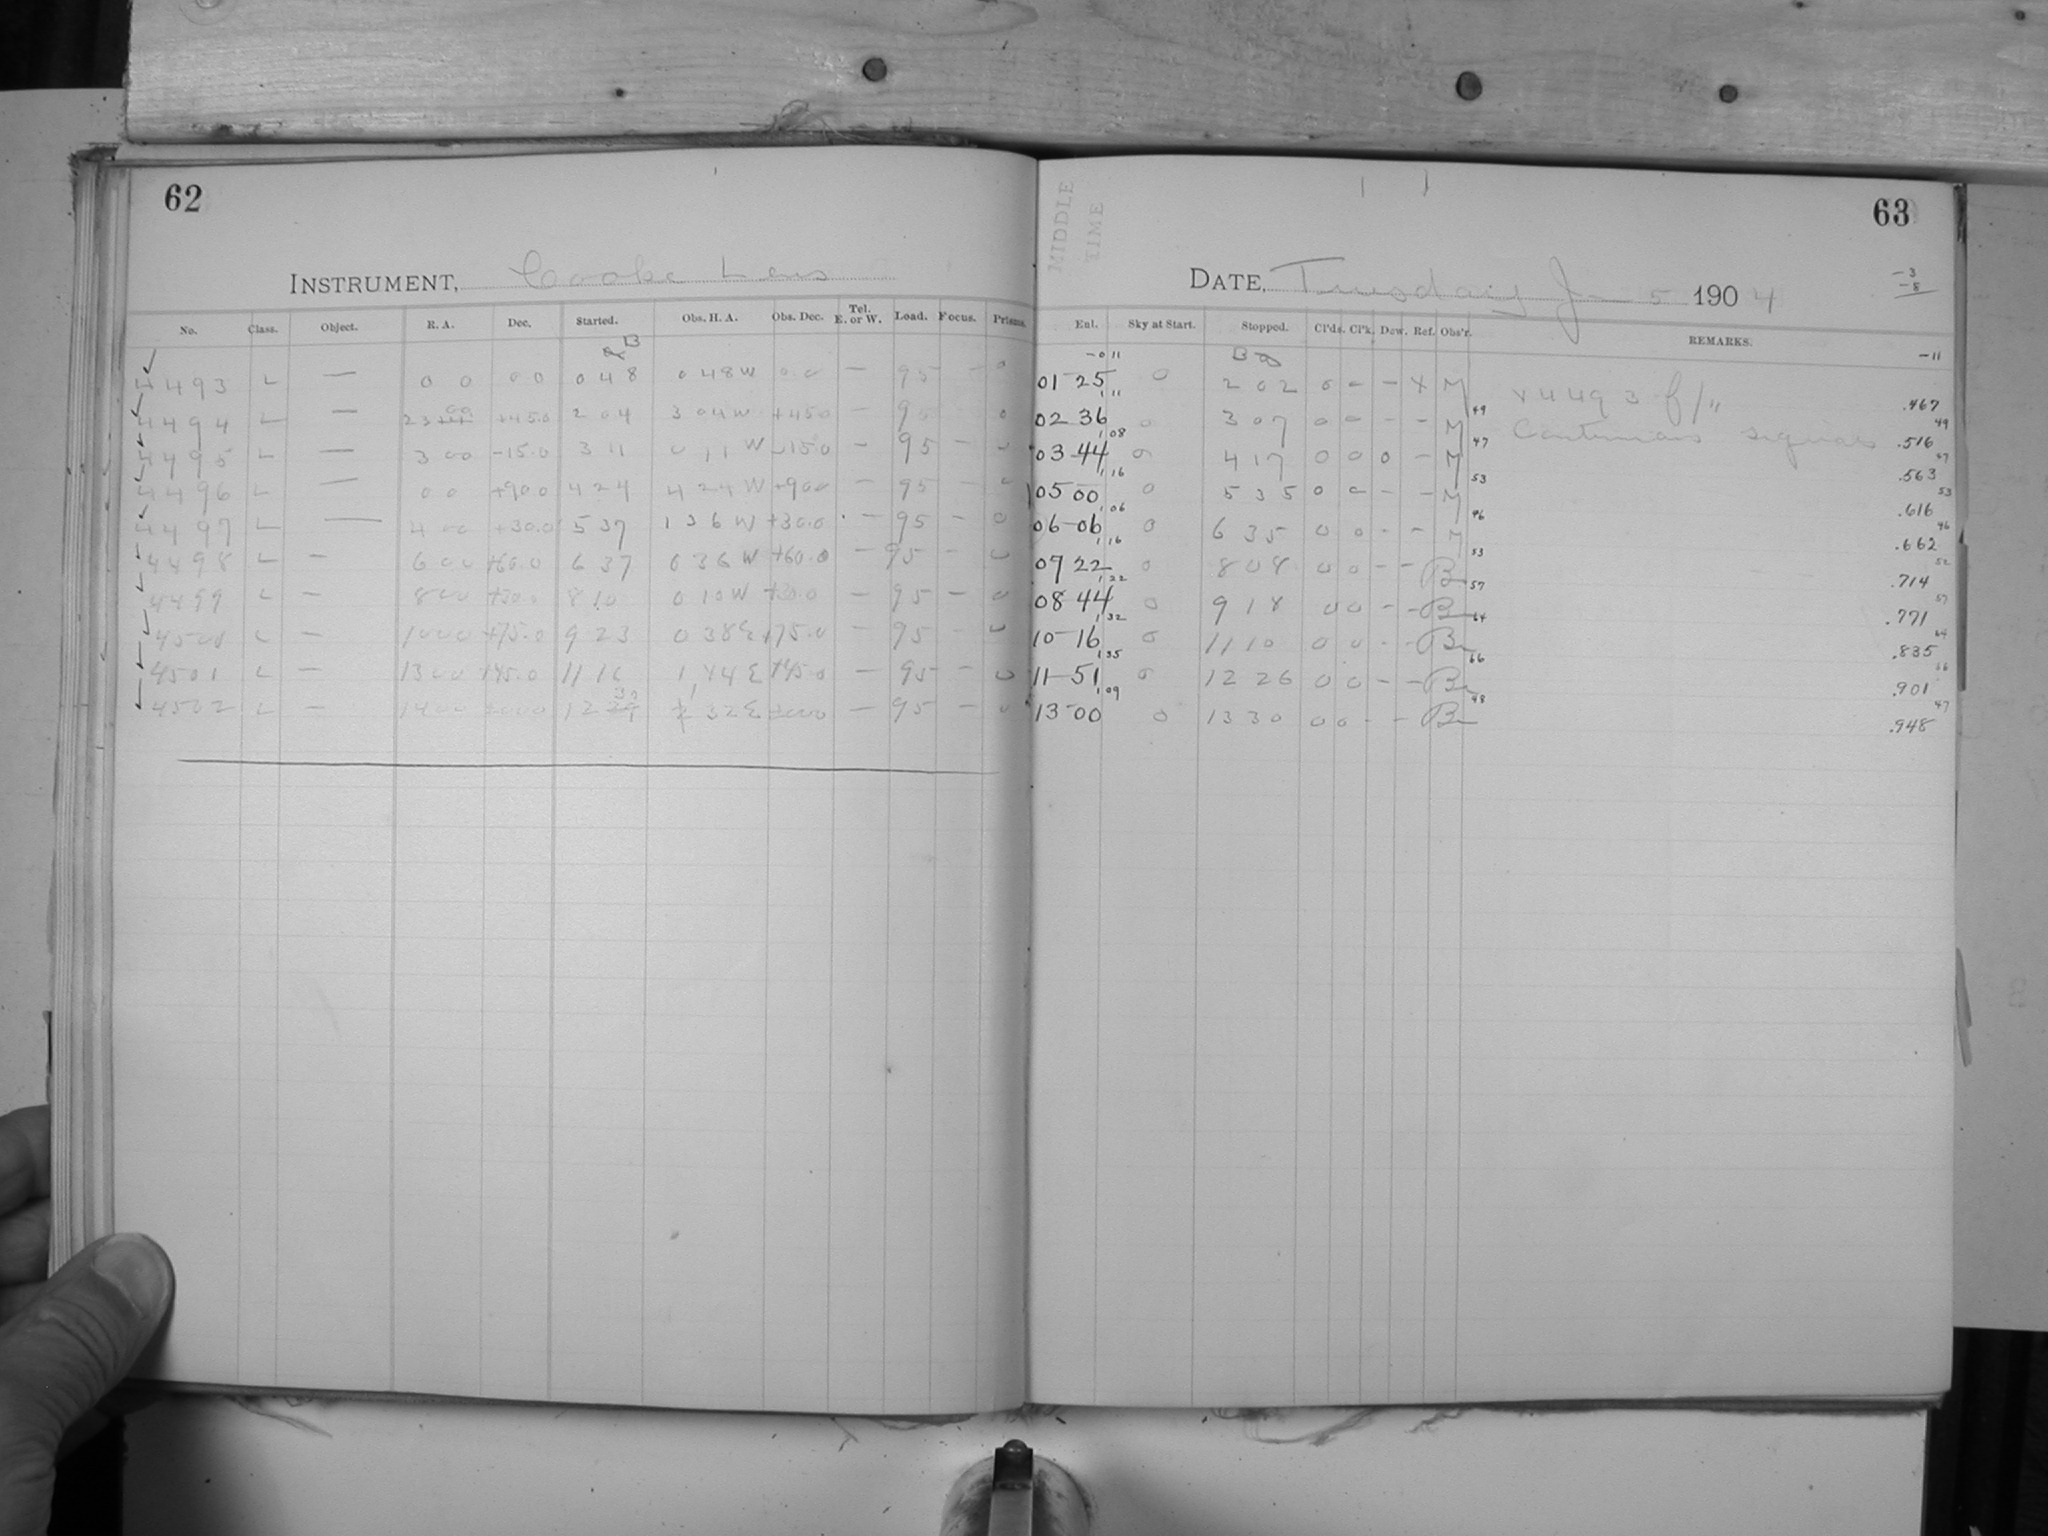 62
INSTRUMENT, Cooke Lens
No. Class. Object. R. A. Dec. Started. Obs. H. A. Obs. Dec. Tel. E. or W. Load. Focus. Prisms.
B
4493 L — 0 0 0 0 0 48 0 48 W 0 0 — 95 — 0
4494 L — 23 00 +45.0 2 04 3 04 W +45 0 — 95 0
4495 L — 3 00 -15.0 3 11 0 11 W -15 0 — 95 — 0
4496 L — 0 0 +90 0 4 24 4 24 W +90 0 — 95 — 0
4497 L — 4 00 +30.0 5 37 1 36 W +30.0 — 95 — 0
4498 L — 6 00 +60.0 6 37 0 36 W +60.0 — 95 — 0
4499 L — 8 00 +30.0 8 10 0 10 W +30.0 — 95 — 0
4500 L — 10 00 +75.0 9 23 0 38 E +75.0 — 95 — 0
4501 L — 13 00 +45.0 11 16 1 44 E +45.0 — 95 — 0
4502 L — 14 00 12 32 E — 95 — 0
MIDDLE TIME
63
DATE, Tuesday Jan 5 1904
-3
-8
Enl. Sky at Start. Stopped. Cl'ds. Cl'k. Dew. Ref. Obs'r. REMARKS.
-0 11 B -11
01 25 0 2 02 0 0 — X M x 4493 f/" .467
1 11 49 49
02 36 0 3 07 0 0 — — M Continuous signals .516
1 08 47 47
03 44 0 4 17 0 0 0 — M .563
1 16 53 53
05 00 0 5 35 0 0 — — M .616
1 06 46 46
06-06 0 6 35 0 0 — — M .662
1 16 53 52
07 22 0 8 08 0 0 — — B .714
1 22 57 57
08 44 0 9 18 0 0 — — B .771
1 32 64 64
10-16 0 11 10 0 0 — — B .835
1 35 66 66
11-51 0 12 26 0 0 — — B .901
1 09 48 47
13-00 0 13 30 0 0 — — B .948